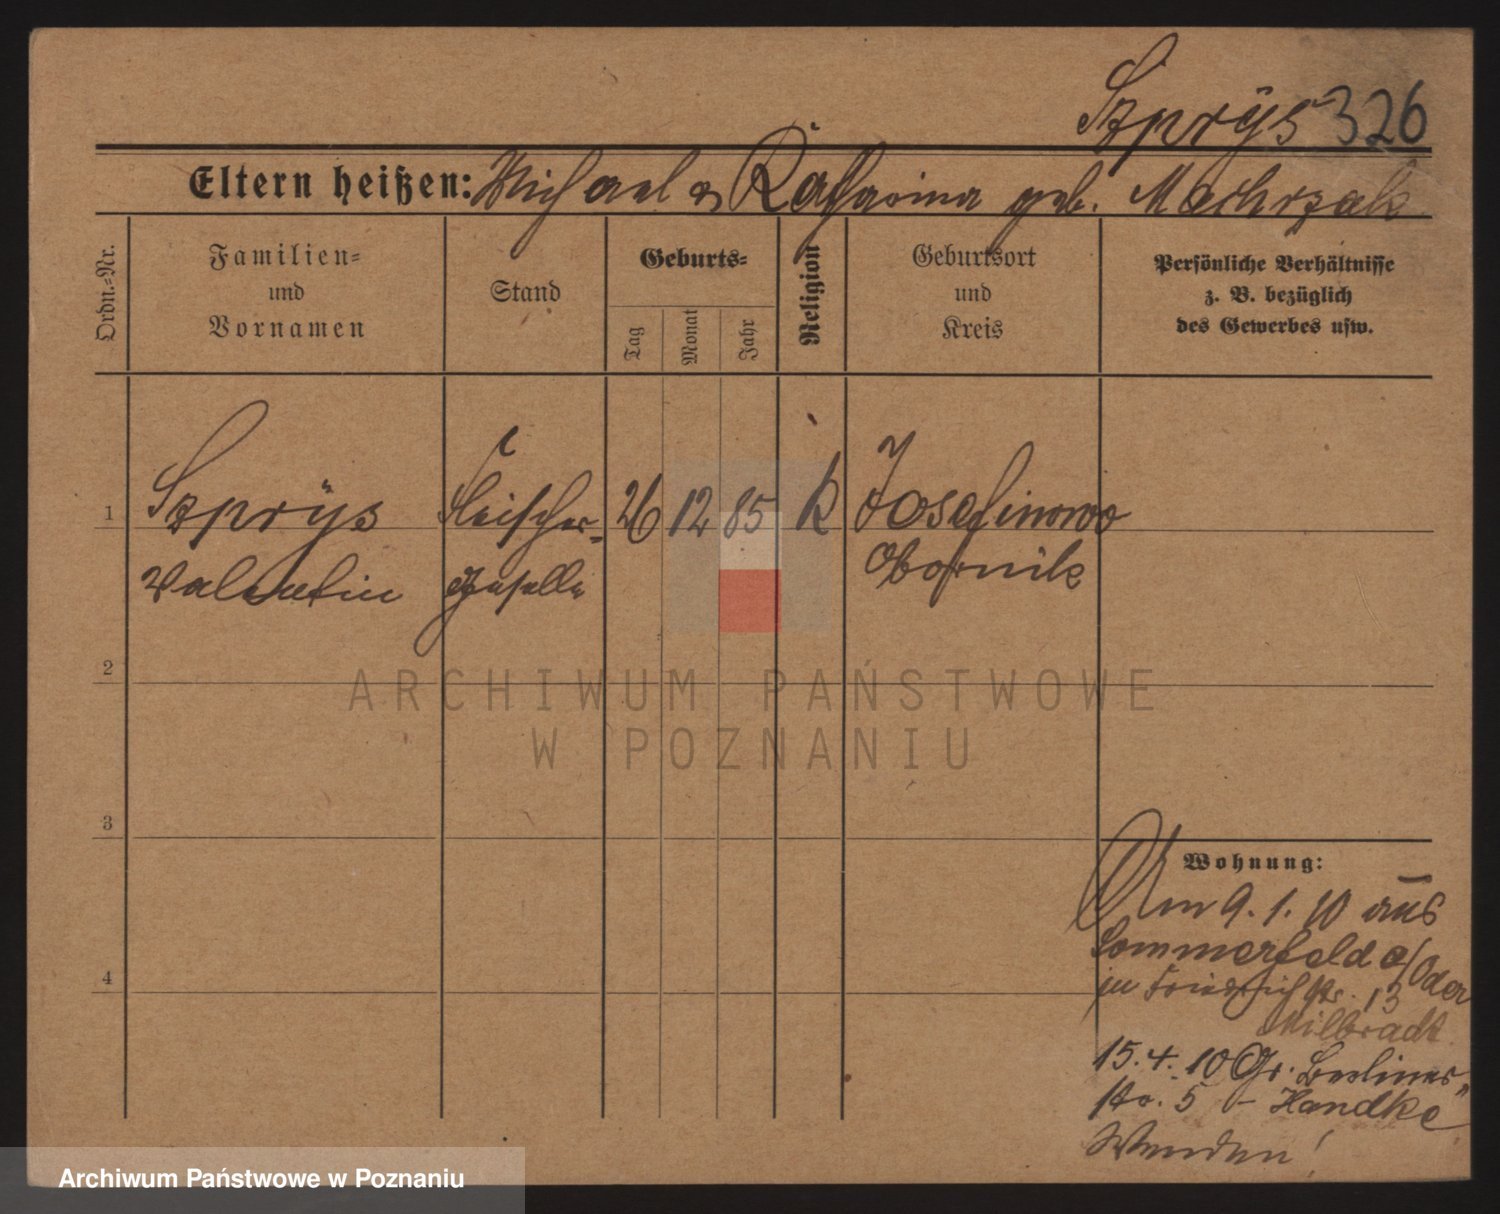 Szprÿs 326
Eltern heißen: Michael & Katharina geb. Machrzak
Ordn.-Nr.
Familien-
und
Vornamen
Stand
Geburts-
Tag
Monat
Jahr
Religion
Geburtsort
und
Kreis
Persönliche Verhältnisse
z. B. bezüglich
des Gewerbes usw.
1 Szprÿs Fleischer- 26 12 85 k Josefinowo
Valentin geselle Obornik
2
3
4
Wohnung:
Am 9. 1. 10 aus
Sommerfeld a/Oder
in Friedrichstr. 13
Milbradt
15. 4. 10 Gr. Berliner-
str. 5 - Handke
Wenden!
ARCHIWUM PAŃSTWOWE
W POZNANIU
Archiwum Państwowe w Poznaniu